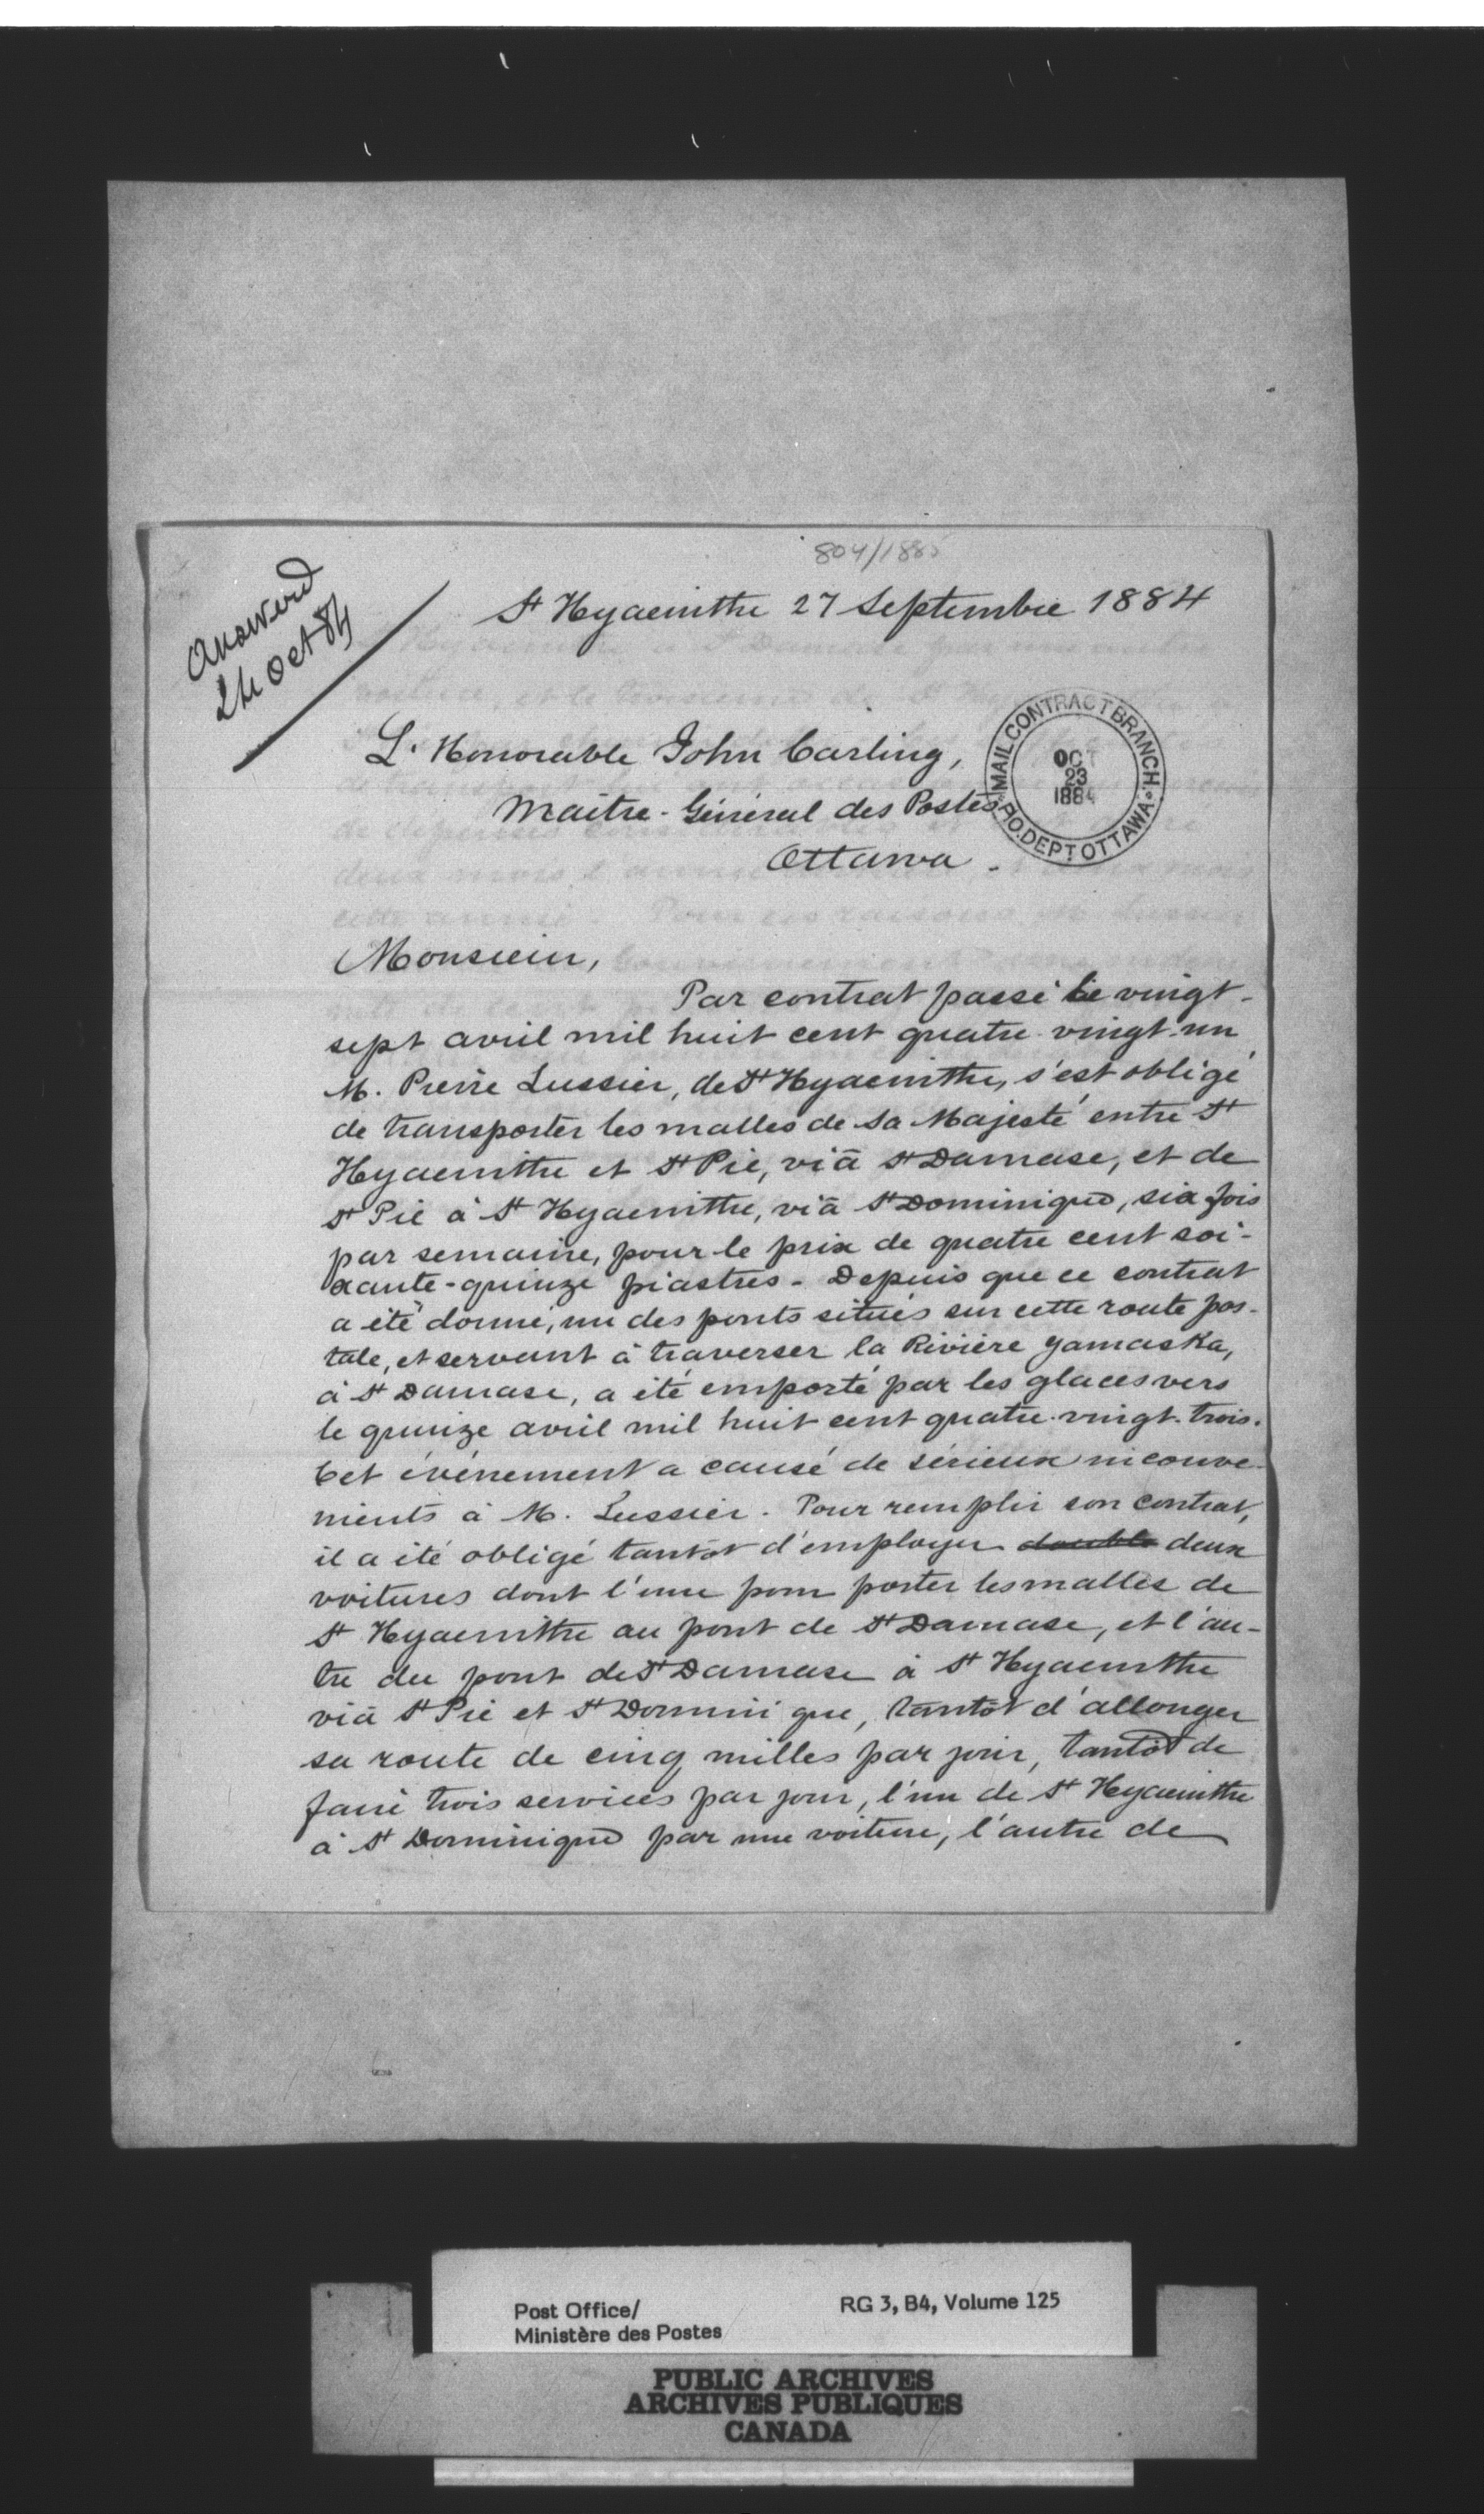 804/1885
Answered
24 Oct 84
St Hyacinthe 27 Septembre 1884
L'Honorable John Carling,
Maître-Général des Postes
Ottawa.
MAIL CONTRACT BRANCH
P.O. DEPT OTTAWA
OCT
23
1884
Monsieur,
Par contrat passé le vingt-
sept avril mil huit cent quatre-vingt-un
M. Pierre Lussier, de St Hyacinthe, s'est obligé
de transporter les malles de Sa Majesté entre St
Hyacinthe et St Pie, viâ St Damase, et de
St Pie à St Hyacinthe, viâ St Dominique, six fois
par semaine, pour le prix de quatre cent soi-
xante-quinze piastres. Depuis que ce contrat
a été donné, un des ponts situés sur cette route pos-
tale, et servant à traverser la Rivière Yamaska,
à St Damase, a été emporté par les glaces vers
le quinze avril mil huit cent quatre-vingt-trois.
Cet événement a causé de sérieux inconvé-
nients à M. Lussier. Pour remplir son contrat,
il a été obligé tantôt d'employer double deux
voitures dont l'une pour porter les malles de
St Hyacinthe au pont de St Damase, et l'au-
tre du pont de St Damase à St Hyacinthe
viâ St Pie et St Dominique, tantôt d'allonger
sa route de cinq milles par jour, tantôt de
faire trois services par jour, l'un de St Hyacinthe
à St Dominique par une voiture, l'autre de
Post Office/
Ministère des Postes
RG 3, B4, Volume 125
PUBLIC ARCHIVES
ARCHIVES PUBLIQUES
CANADA